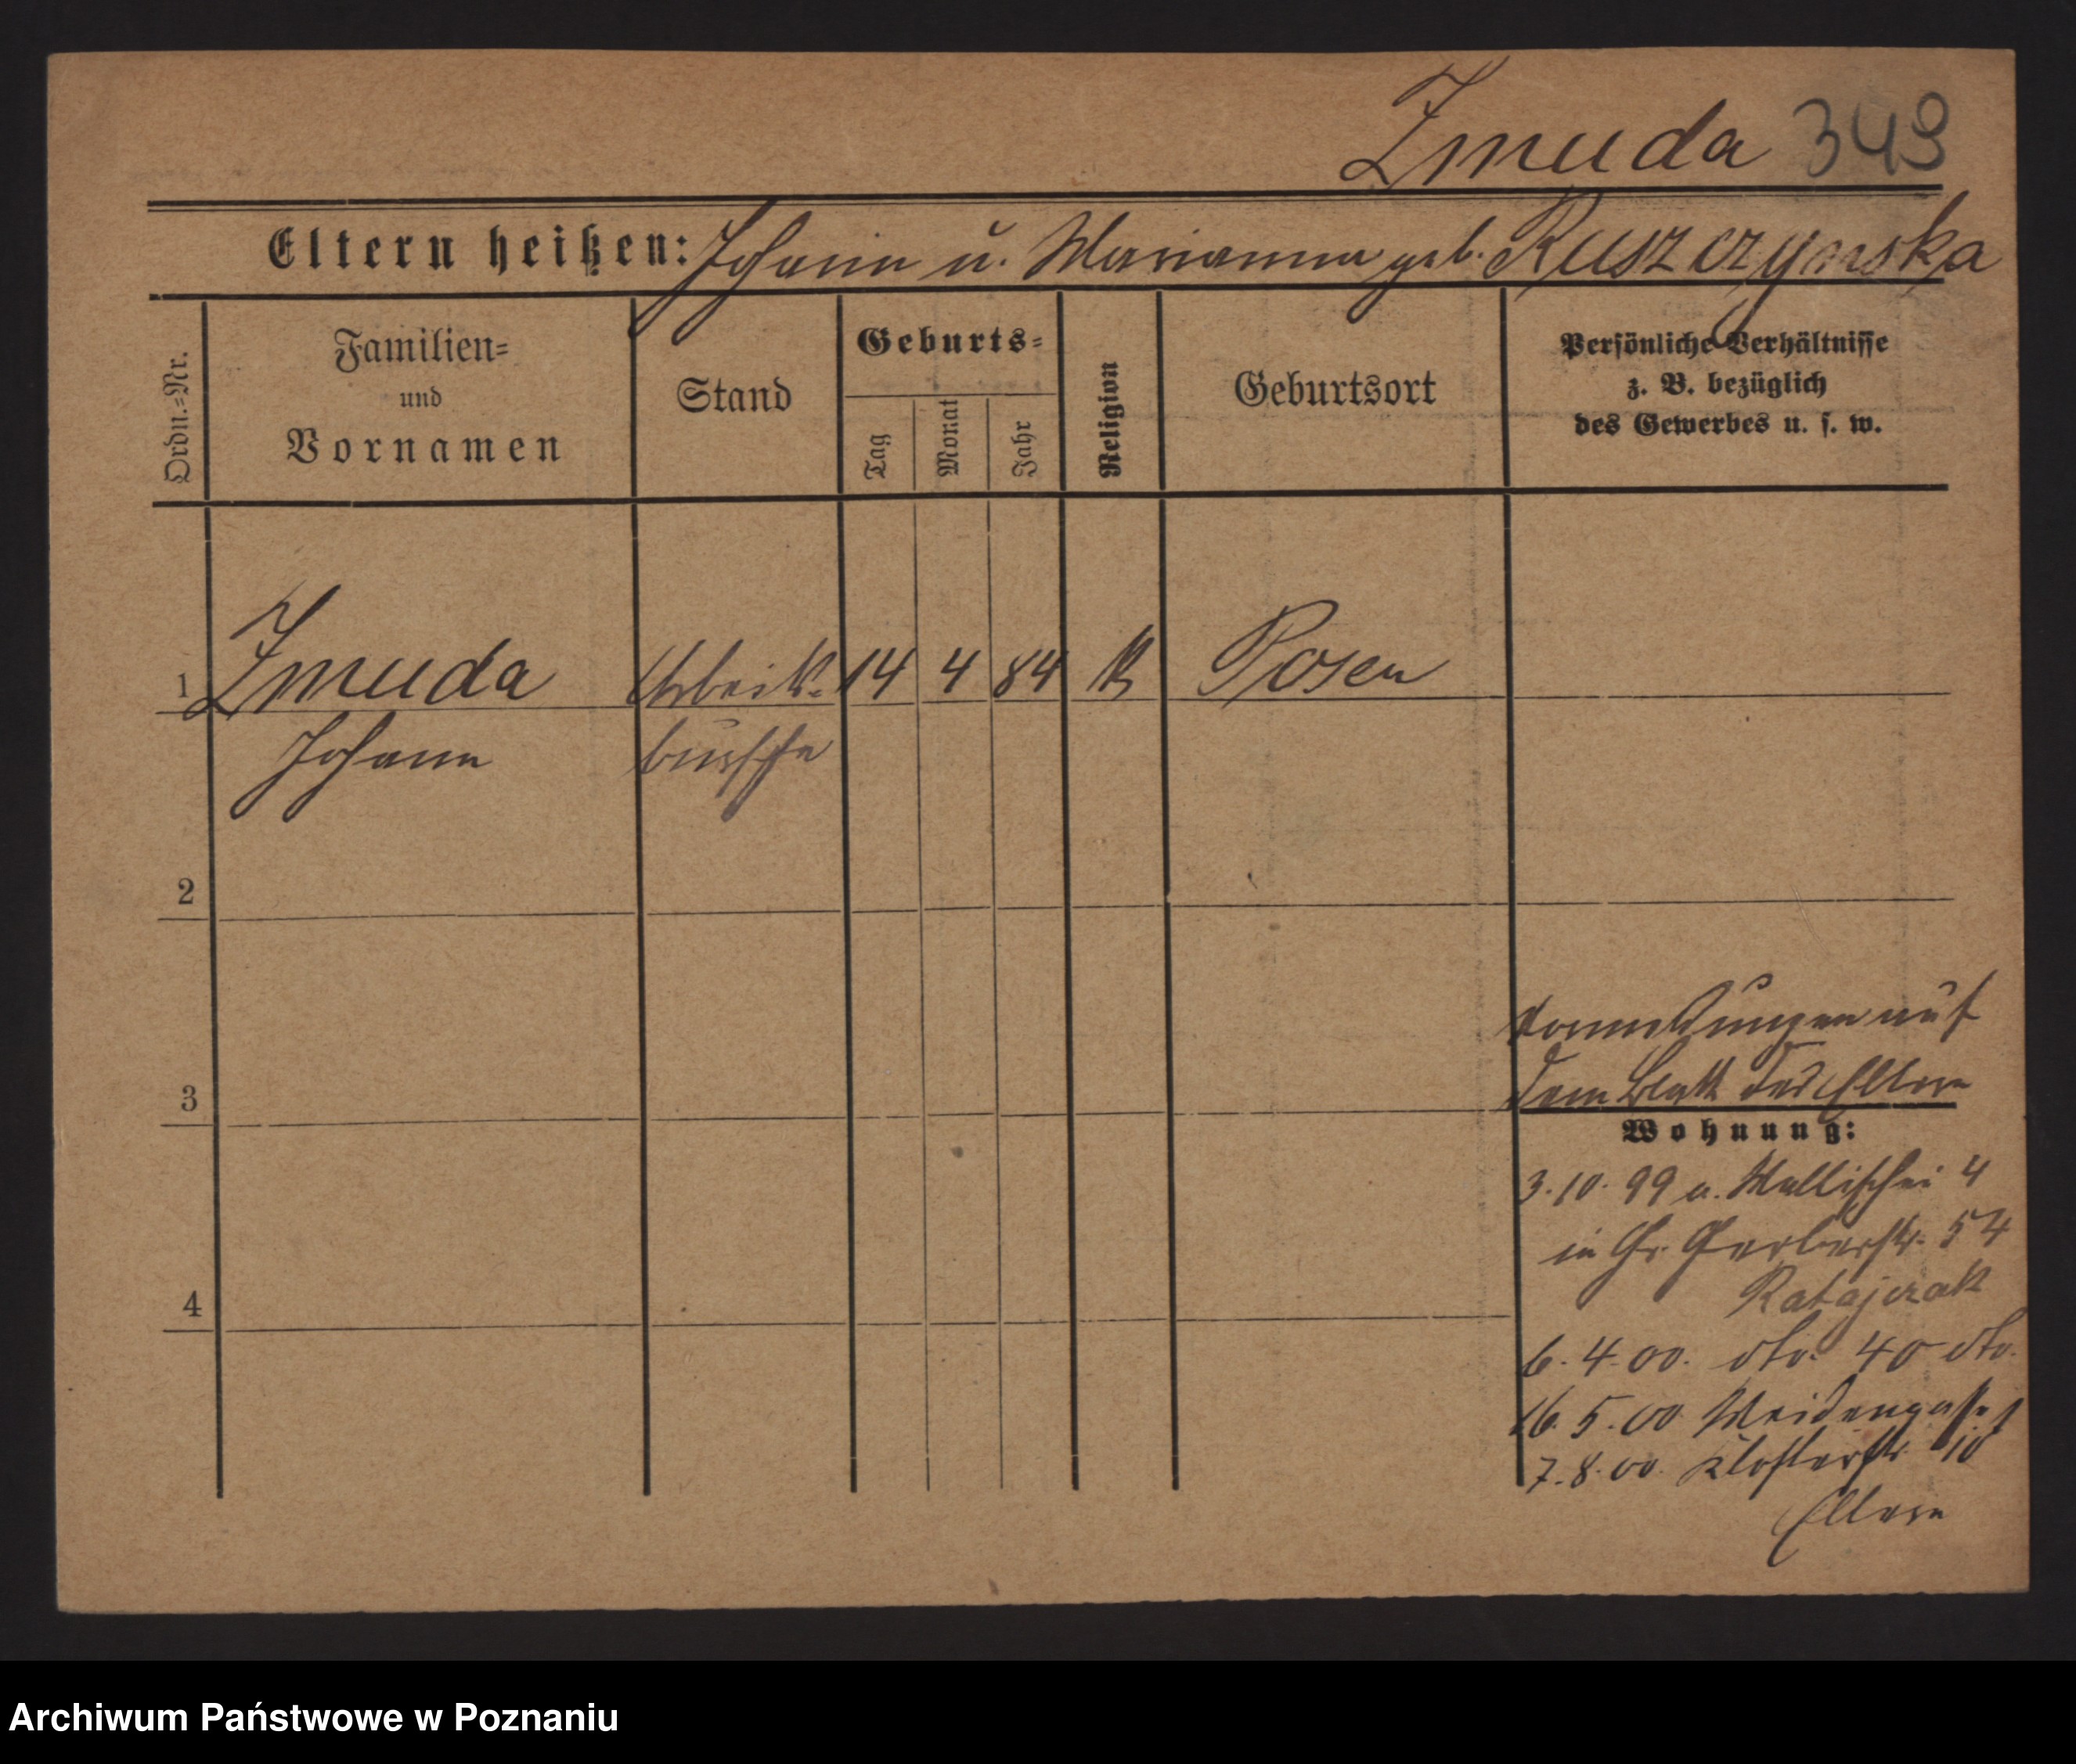 Zmuda 349
Eltern heißen: Johann u. Marianna geb. Ruszczynska
Ordn.=Nr.
Familien=
und
Vornamen
Stand
Geburts=
Tag
Monat
Jahr
Religion
Geburtsort
Persönliche Verhältnisse
z. B. bezüglich
des Gewerbes u. s. w.
1 Zmuda Arbeits- 14 4 84 K Posen
Johann bursche
2
3
4
auf
dem Blatt der Eltern
Wohnung:
3. 10. 99 a. Wallischei 4
in Gr. Gerberstr. 54
Ratajczak
6. 4. 00. dto. 40 dto.
16. 5. 00 Weidengasse
7. 8. 00. Klosterstr. 10
Eltern
Archiwum Państwowe w Poznaniu